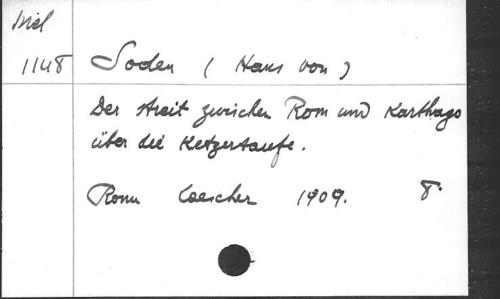 Misl
1148
Soden (Hans von)
Der Streit zwischen Rom und Karthago
über die Ketzertaufe.
Rom Loescher 1909. 8°